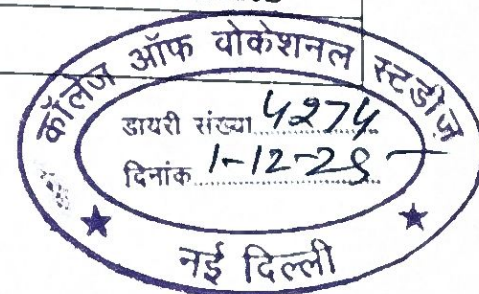 कॉलेज ऑफ वोकेशनल स्टडीज़
डायरी संख्या 4274
दिनांक 1-12-25
नई दिल्ली